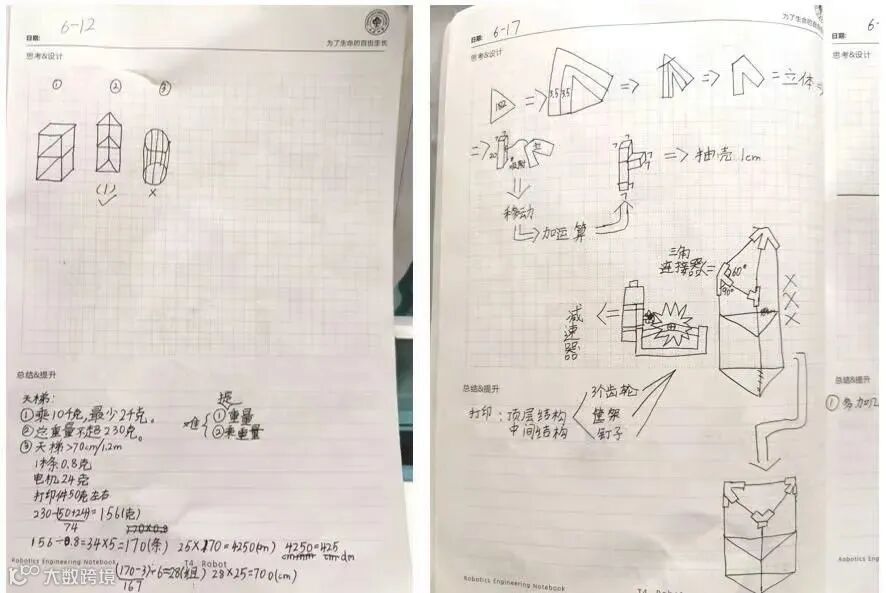 6-12
日期:
为了生命的自由生长
思考&设计
① ② ③
(1)
×
总结&提升
天梯:
①乘104克,最少24克。
②总重量不超230克。
③天梯>70cm/1.2m
冰条0.8克
电机24克
打印件50克左右
①重量
②乘重量
230-(50+24)=156(克)
74
170×0.8
156÷0.8=34×5=170(条) 25×170=4250(cm)
Robotics Engineering Notebook
T4 Robot
(170-3)÷6=28(组) 28×25=700(cm)
167
6-17
日期:
为了生命的自由生长
思考&设计
3.5 3.5
=立体
20
7
=>抽壳1cm
移动
加运算
三角
连接器
60°
90°
×
×
×
减速器
总结&提升
打印:顶层结构
中间结构
3个齿轮
筐架
钉子
Robotics Engineering Notebook
T4 Robot
6-
日期:
思考&设计
总结&提升
①多加
Robotics En
大数跨境